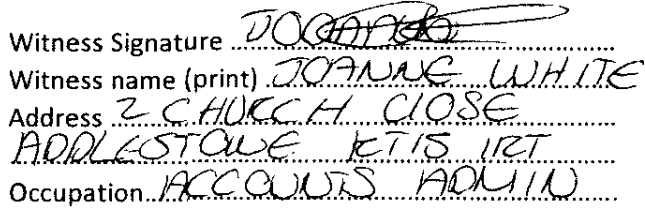 Witness Signature
Witness name (print) JOANNE WHITE
Address 2 CHURCH CLOSE
ADDLESTONE KT15 1RT
Occupation ACCOUNTS ADMIN